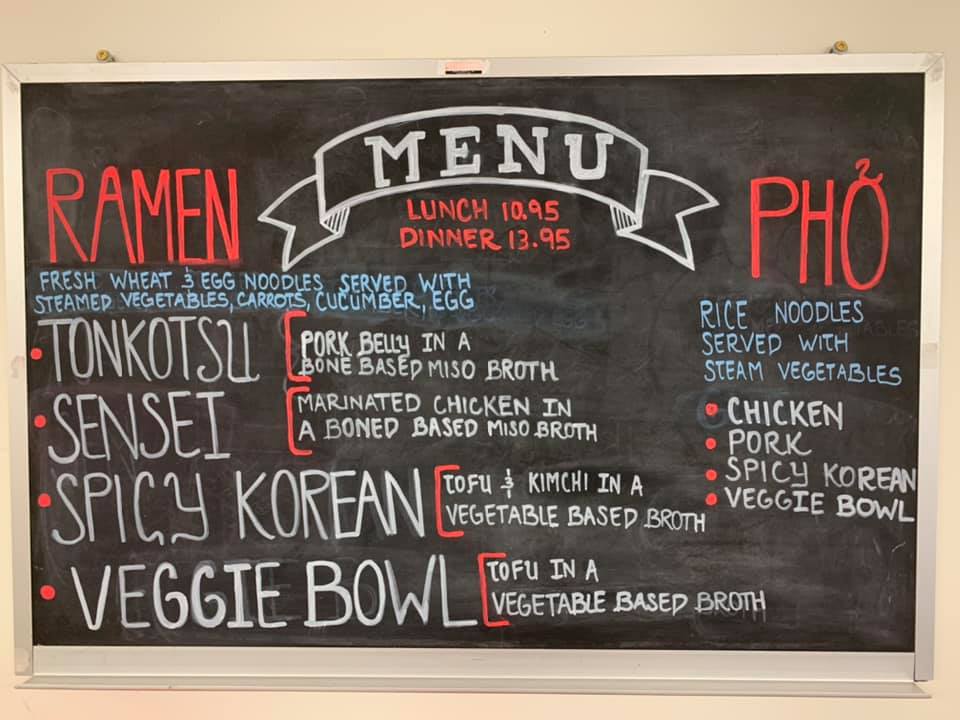 MENU
LUNCH 10.95
DINNER 13.95
RAMEN
FRESH WHEAT & EGG NOODLES SERVED WITH
STEAMED VEGETABLES, CARROTS, CUCUMBER, EGG
TONKOTSU
PORK BELLY IN A
BONE BASED MISO BROTH
SENSEI
MARINATED CHICKEN IN
A BONED BASED MISO BROTH
SPICY KOREAN
TOFU & KIMCHI IN A
VEGETABLE BASED BROTH
VEGGIE BOWL
TOFU IN A
VEGETABLE BASED BROTH
PHỞ
RICE NOODLES
SERVED WITH
STEAM VEGETABLES
CHICKEN
PORK
SPICY KOREAN
VEGGIE BOWL